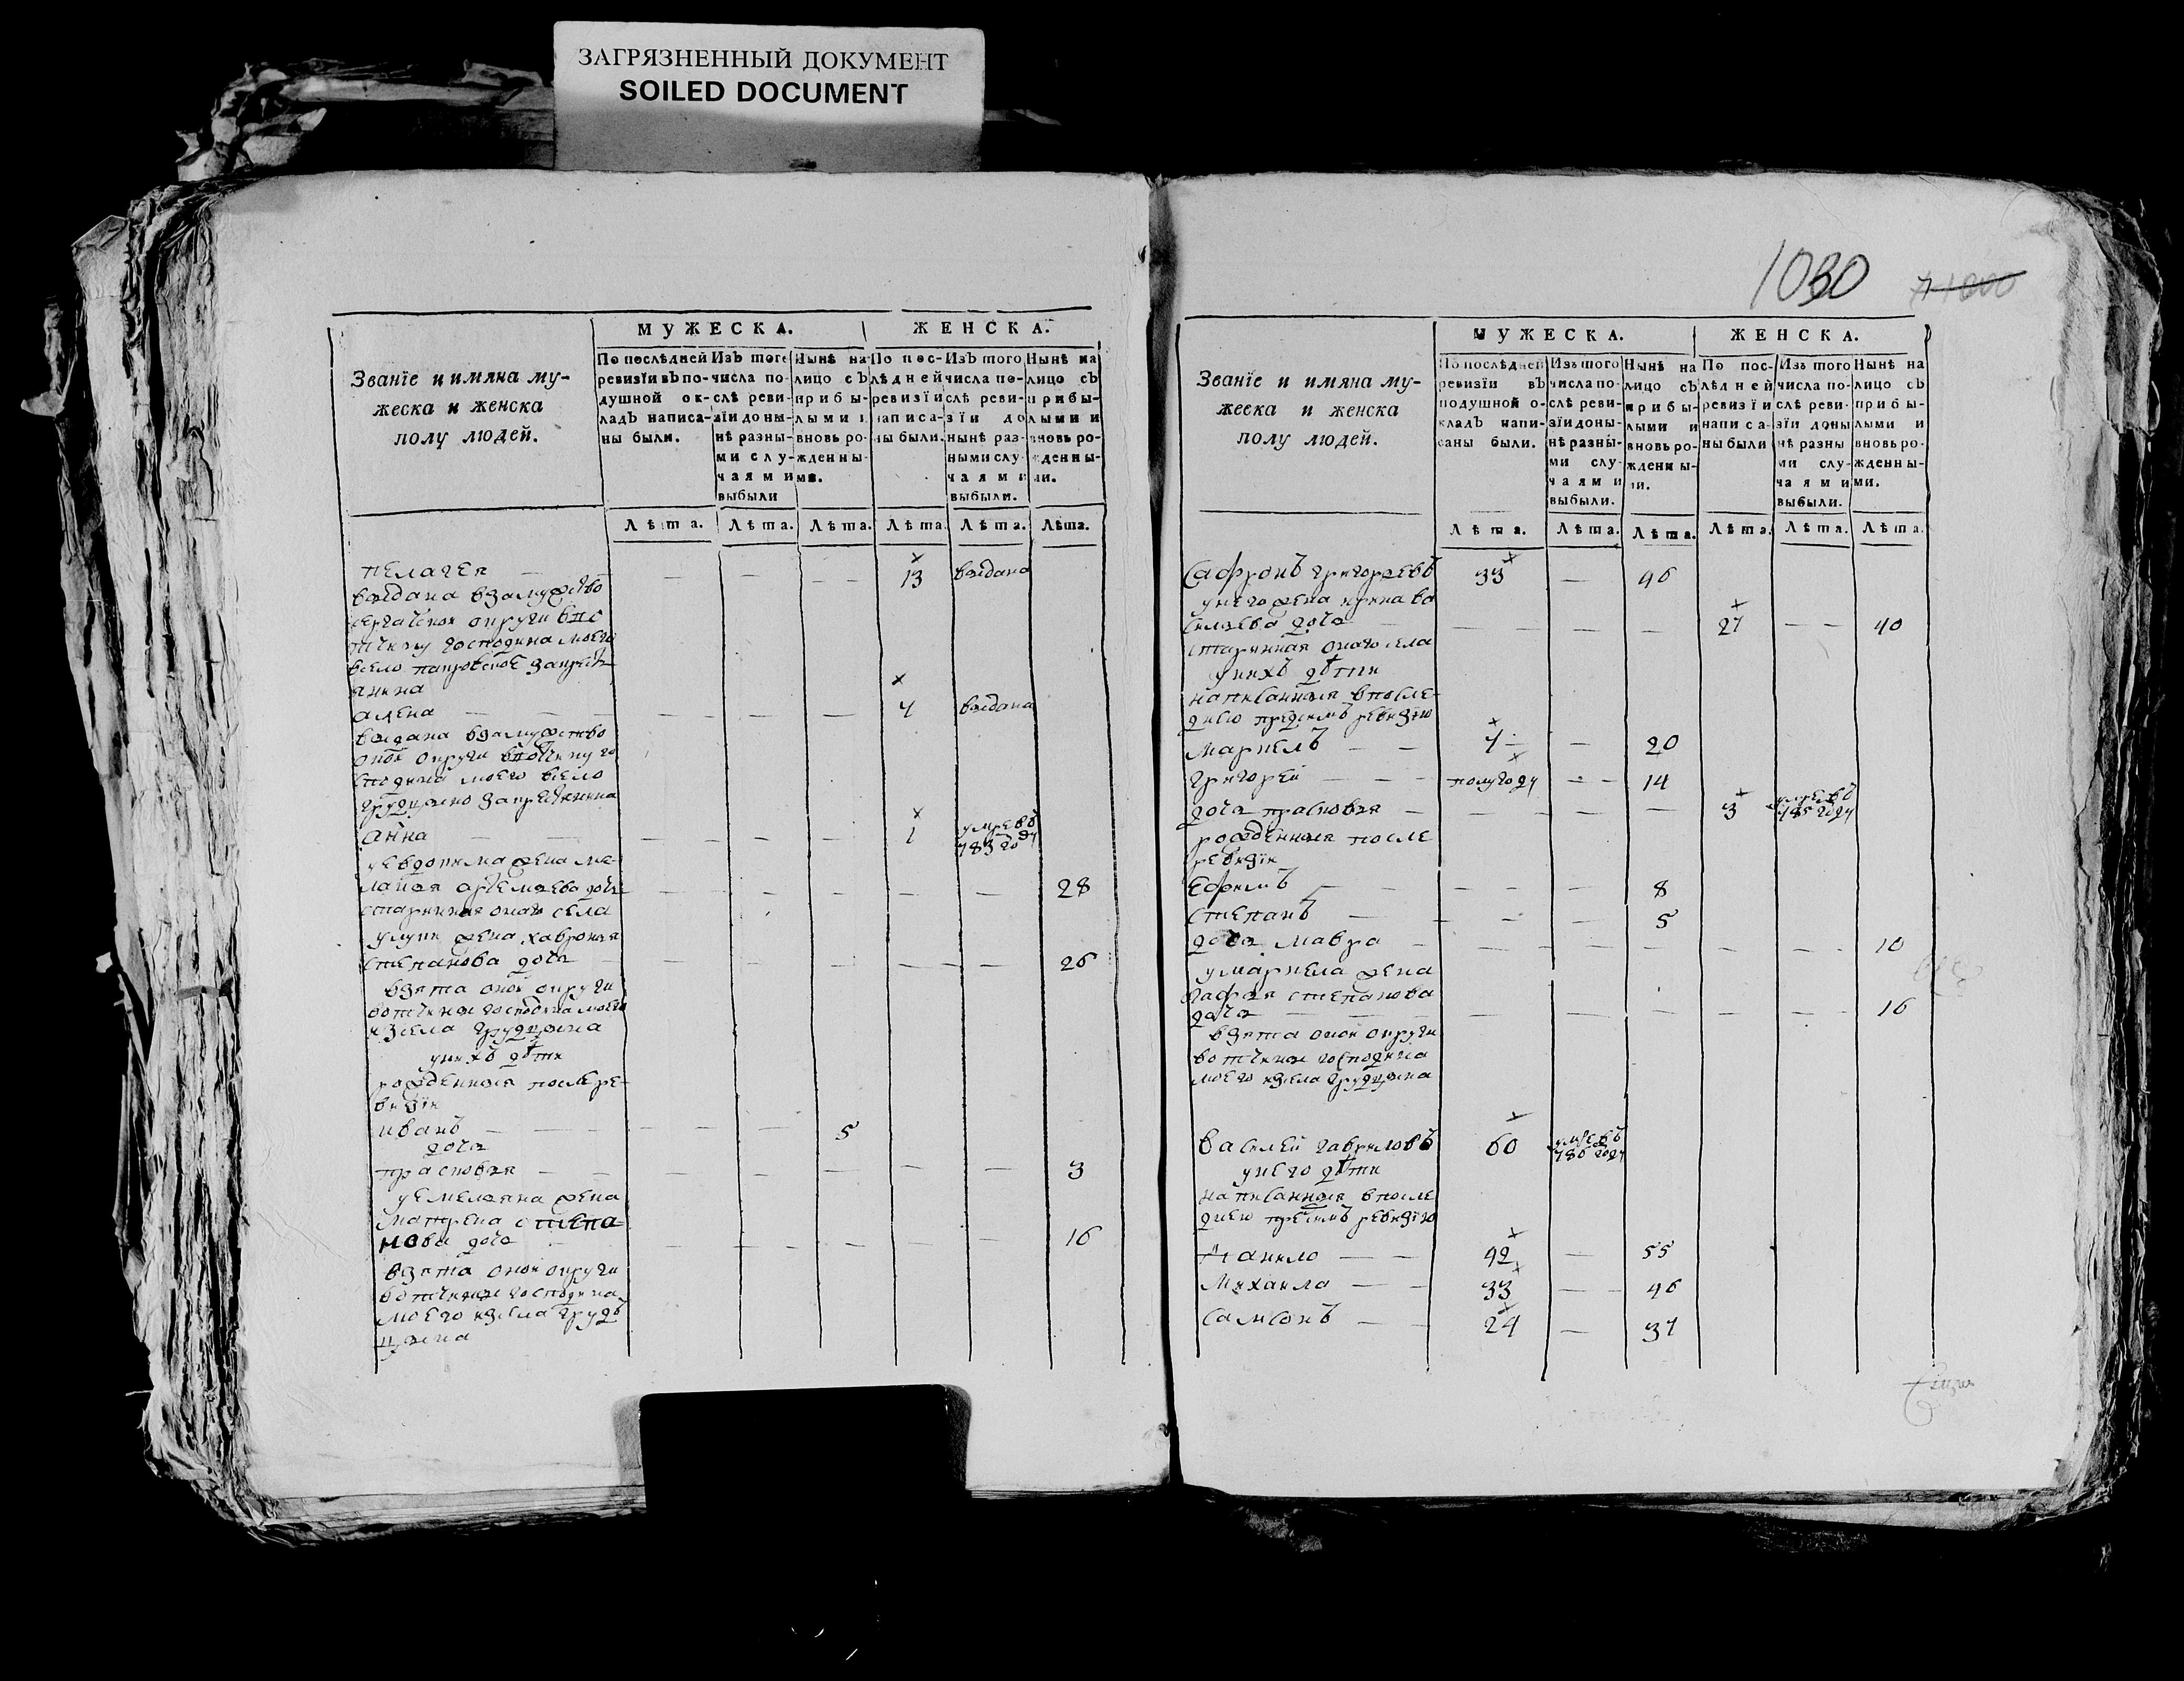 ЗАГРЯЗНЕННЫЙ ДОКУМЕНТ
SOILED DOCUMENT
Званіе и имяна му-
жеска и женска
полу людей.
МУЖЕСКА.
ЖЕНСКА.
По послѣдней ревизїи въ по-душной ок-ладъ написа-ны были.
Изъ того числа по-слѣ реви-зїи доны-нѣ разны-ми слу-чаями выбыли
Нынѣ на лицо съ прибы-лыми и вновь ро-жденны-ми.
По пос-лѣдней ревизїи написа-ны были.
Изъ того числа по-слѣ реви-зїи до нынѣ раз-ными слу-чаями выбыли.
Нынѣ на лицо съ прибы-лыми и вновь ро-жденны-ми.
Лѣта. Лѣта. Лѣта. Лѣта. Лѣта. Лѣта.
пелагея — — — — 13 выдана
выдана взамужство
округи
господина моего
всело
алена — — — — 4 выдана
выдана взамужство
оной округи вотчину го
сподина моего всело
анна — — — — 1 умре въ 783 году
уевдокима жена ме
ланья артемьева дочь — — — — — 28
старинная онаго села
жена хавронья
степанова дочь — — — — — 26
взята оной округи
вотчины господина моего
изсела
унихъ дѣти
рожденныя послѣ ре-
визїи
иванъ — — — — 5
дочь
прасковья — — — — — — 3
уемельяна жена
матрена степа
нова дочь — — — — — — 16
взята оной округи
вотчины господина
моего изсела
1030
Званіе и имяна му-
жеска и женска
полу людей.
МУЖЕСКА.
ЖЕНСКА.
По послѣдней ревизїи въ подушной о-кладъ напи-саны были.
Изъ того числа по-слѣ реви-зїи доны-нѣ разны-ми слу-чаями выбыли.
Нынѣ на лицо съ прибы-лыми и вновь ро-жденны-ми.
По пос-лѣдней ревизїи написа-ны были
Изъ того числа по-слѣ реви-зїи доны нѣ разны ми слу-чаями выбыли.
Нынѣ на лицо съ прибы-лыми и вновь ро-жденны-ми.
Лѣта. Лѣта. Лѣта. Лѣта. Лѣта. Лѣта.
Сафронъ григорьевъ 33 — 46
унего жена ирина ва
сильева дочь — — — — 27 — — 40
старинная онаго села
унихъ дѣти
написанныя впосле
днею предъ симъ ревизїю
маркелъ — — 7 — — 20
григорей — — — полугоду — — 14
дочь прасковья — — — — 3 умре въ 785 году
рожденныя после
ревизїи
ефимъ — — — — 8
степанъ — — — — 5
дочь мавра — — — — — — — 10
умаркела жена
агафья степанова
дочь — — — — — — 16
взята оной округи
вотчины господина
моего изсела
василей гавриловъ 60 умре въ 786 году
унего дѣти
написанныя впосле
днею предъ симъ ревизїю
данило — — 42 — 55
михаила — — 33 — — 46
самсонъ — — 24 — 37